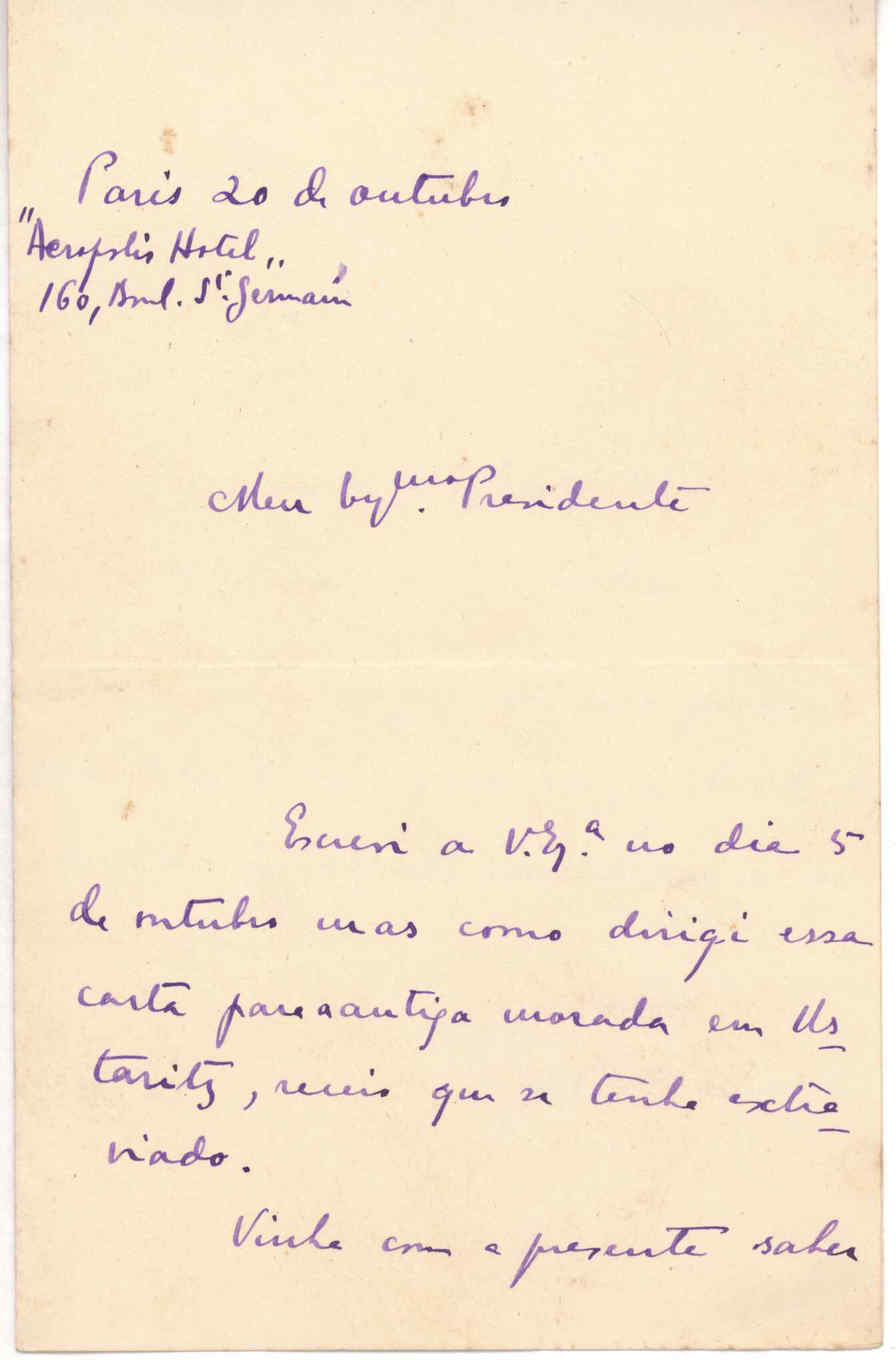 Paris 20 de outubro
"Acropolis Hotel"
160, Boul. St. Germain
Meu Exmo. Presidente
Escrevi a V. Exª. no dia 5
de outubro mas como dirigi essa
carta para a antiga morada em Us
taritz, receio que se tenha extra
viado.
Vinha com a presente saber